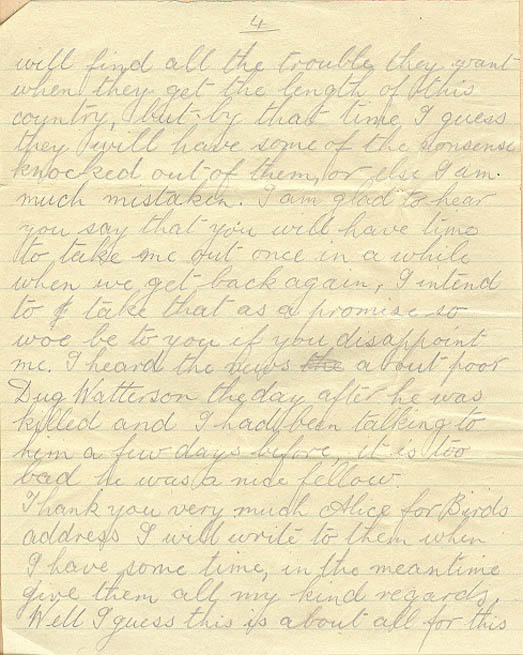 4
will find all the trouble they want
when they get the length of this
country, but by that time I guess
they will have some of the nonsense
knocked out of them, or else I am
much mistaken. I am glad to hear
you say that you will have time
to take me out once in a while
when we get back again, I intend
to take that as a promise so
woe be to you if you disappoint
me. I heard the news the about poor
Dug Watterson the day after he was
killed and I had been talking to
him a few days before, it is too
bad he was a nice fellow.
Thank you very much Alice for Birds
address I will write to them when
I have some time, in the meantime
give them all my kind regards.
Well I guess this is about all for this